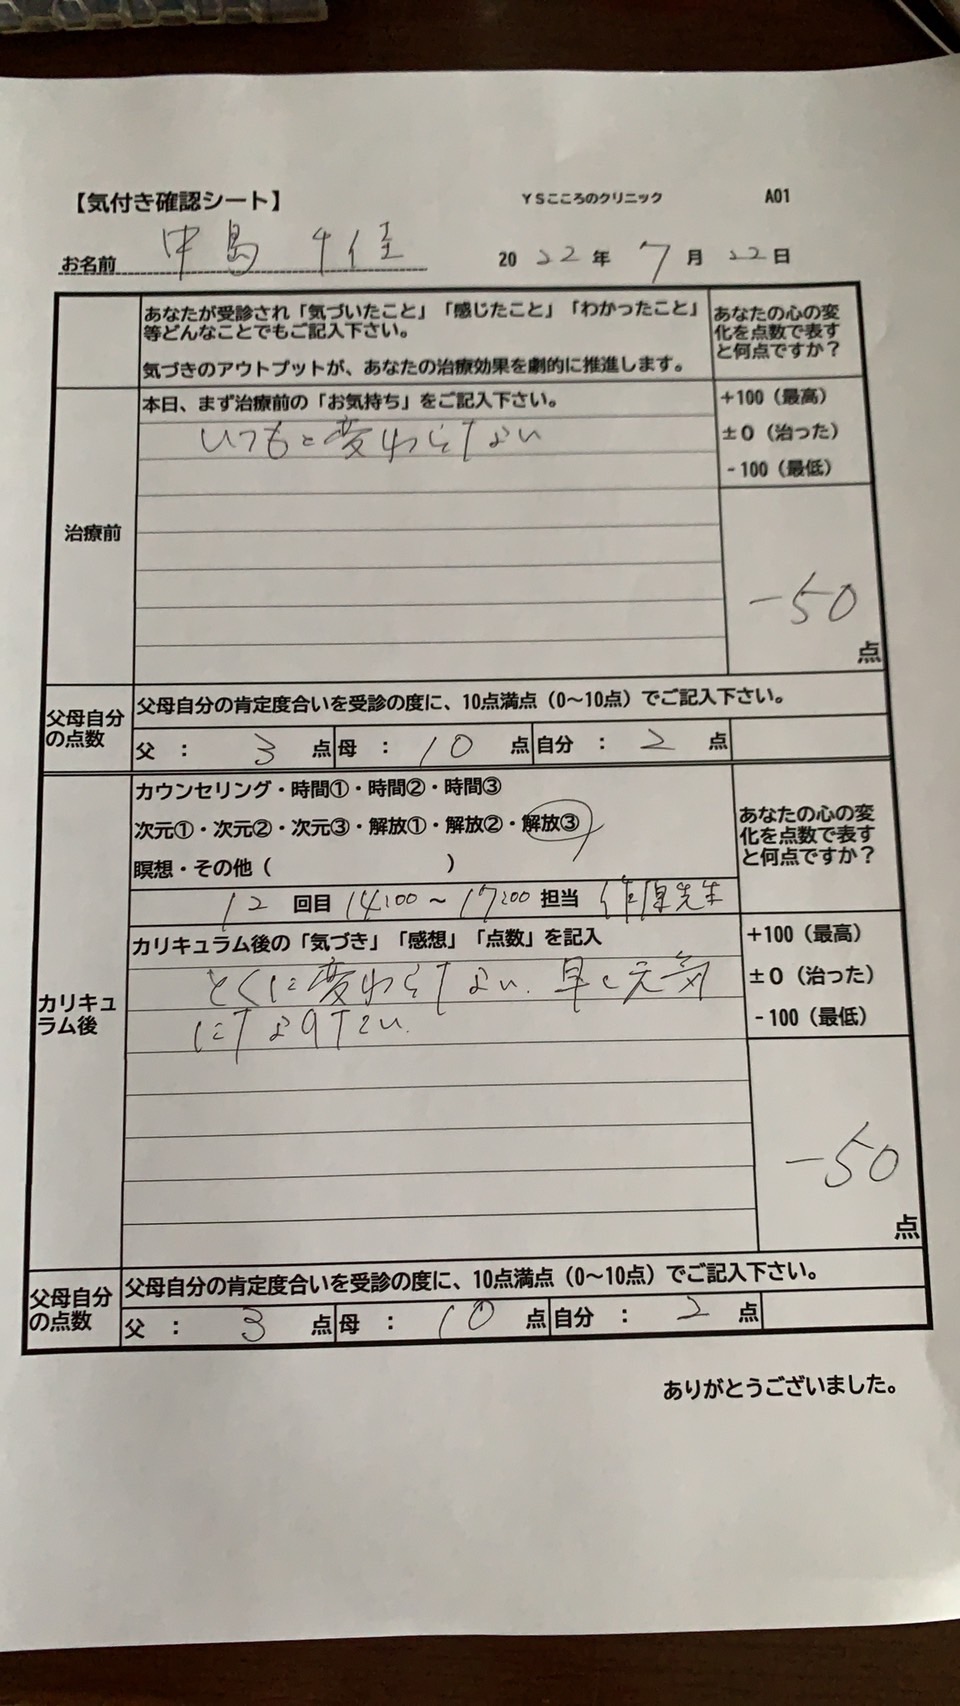 【気付き確認シート】 YSこころのクリニック A01
お名前 中島 千佳 2022年 7月 22日
あなたが受診され「気づいたこと」「感じたこと」「わかったこと」
等どんなことでもご記入下さい。
気づきのアウトプットが、あなたの治療効果を劇的に推進します。
あなたの心の変
化を点数で表す
と何点ですか？
治療前
本日、まず治療前の「お気持ち」をご記入下さい。
いつもと変わらない
+100（最高）
±0（治った）
-100（最低）
-50
点
父母自分
の点数
父母自分の肯定度合いを受診の度に、10点満点（0〜10点）でご記入下さい。
父 ： 3 点 母 ： 10 点 自分 ： 2 点
カリキュ
ラム後
カウンセリング・時間①・時間②・時間③
次元①・次元②・次元③・解放①・解放②・解放③
瞑想・その他（ ）
12 回目 14:00 〜 17:00 担当 先生
あなたの心の変
化を点数で表す
と何点ですか？
カリキュラム後の「気づき」「感想」「点数」を記入
とくに変わらない。早く元気
になりたい。
+100（最高）
±0（治った）
-100（最低）
-50
点
父母自分
の点数
父母自分の肯定度合いを受診の度に、10点満点（0〜10点）でご記入下さい。
父 ： 3 点 母 ： 10 点 自分 ： 2 点
ありがとうございました。